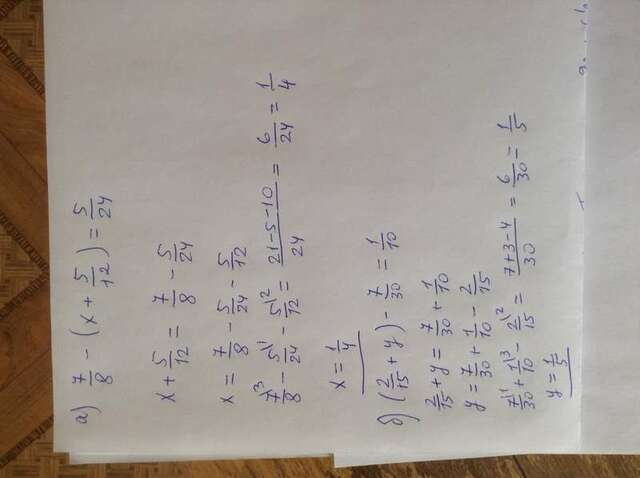 а) 7/8 - (x + 5/12) = 5/24
x + 5/12 = 7/8 - 5/24
x = 7/8 - 5/24 - 5/12
7\3/8 - 5\1/24 - 5\2/12 = 21-5-10/24 = 6/24 = 1/4
x = 1/4
б) (2/15 + y) - 7/30 = 1/10
2/15 + y = 7/30 + 1/10
y = 7/30 + 1/10 - 2/15
7\1/30 + 1\3/10 - 2\2/15 = 7+3-4/30 = 6/30 = 1/5
y = 1/5